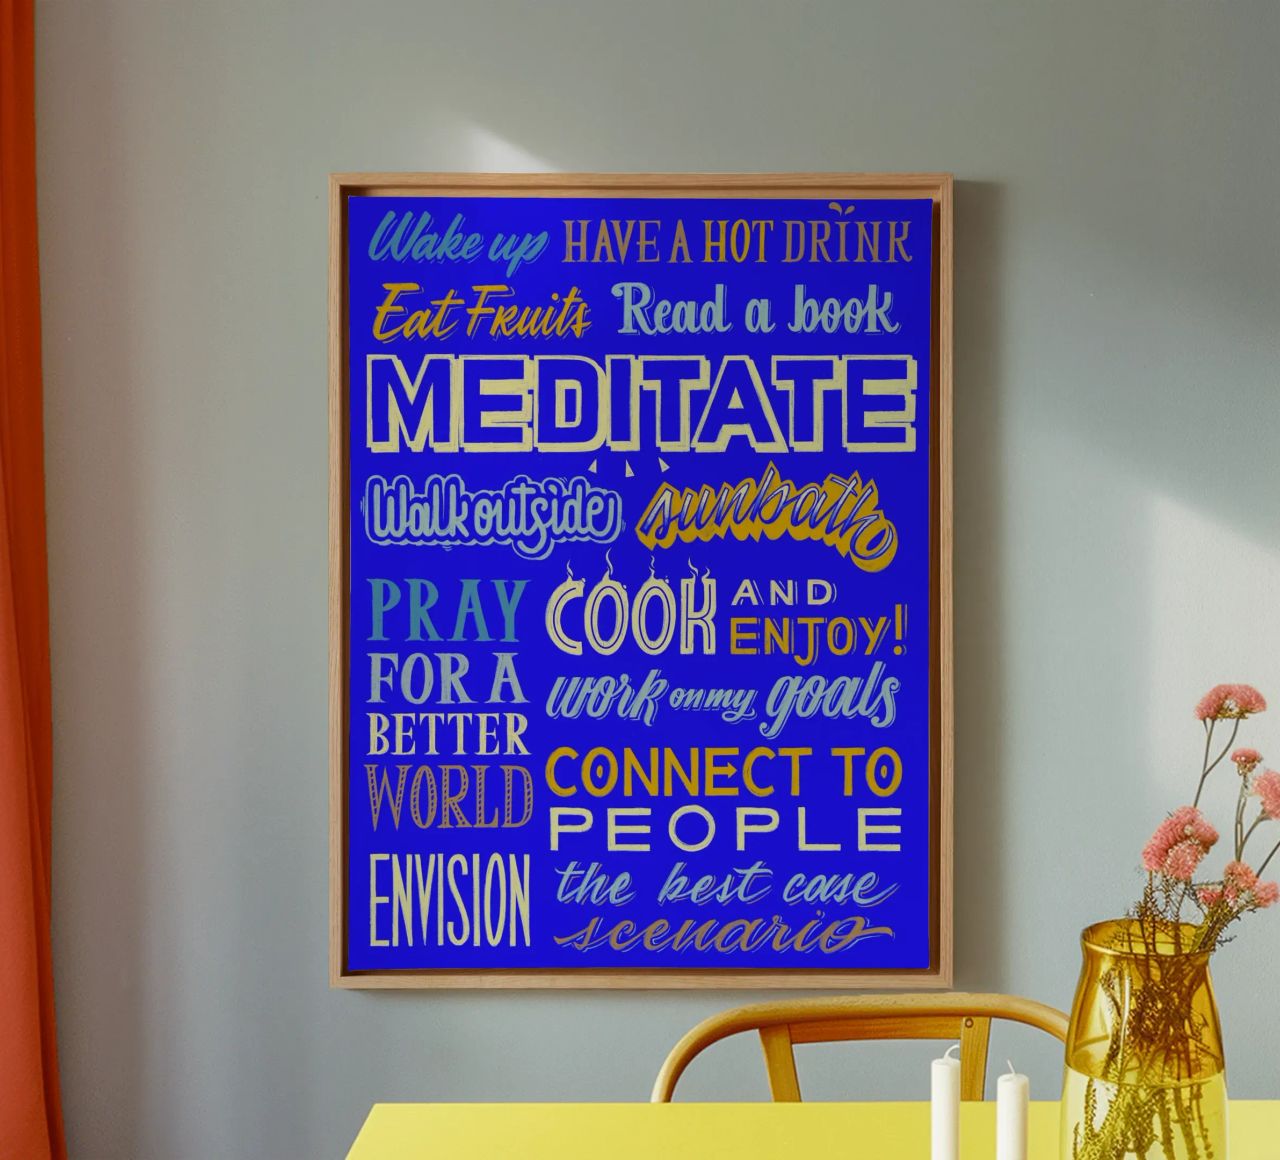 Wake up HAVE A HOT DRINK
Eat Fruits Read a book
MEDITATE
Walk outside sunbath
PRAY
FOR A
BETTER
WORLD
COOK AND
ENJOY!
work on my goals
CONNECT TO
PEOPLE
ENVISION
the best case
scenario